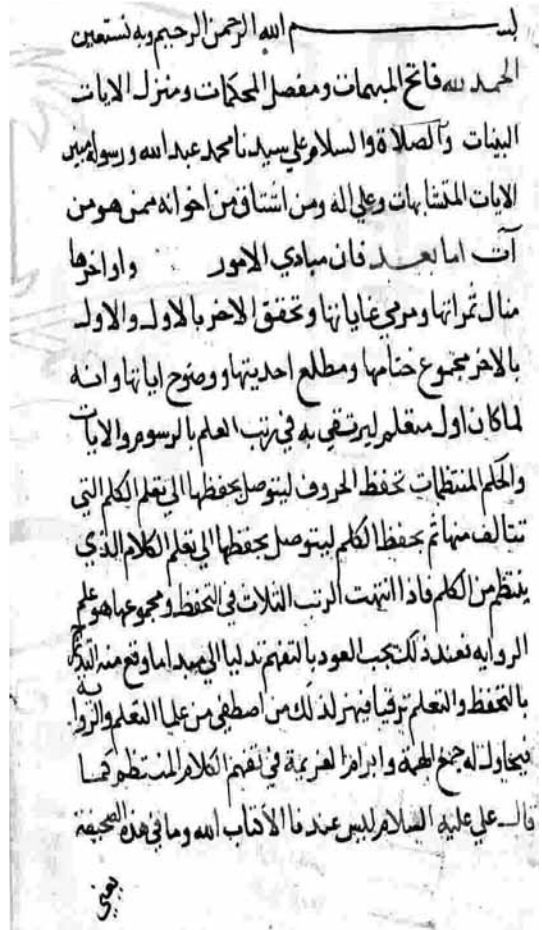 بسم الله الرحمن الرحيم وبه نستعين
الحمد لله فاتح المبهمات ومفصل المحكمات ومنزل الايات
البينات والصلاة والسلام علي سيدنا محمد عبد الله ورسوله مبين
الايات المتشابهات وعلي اله ومن اشتاق من اخوانه ممن هو من
آت اما بعد فان مبادي الامور واواخرها
منال ثمراتها ومرمي غاياتها وتحقق الاخر بالاول والاول
بالاخر مجموع ختامها ومطلع احديتها ووضوح اياتها وانه
لما كان اول متعلم ليرتقي به في رتب العلم بالرسوم والايات
والحكم المنتظمات تحفظ الحروف ليتوصل بحفظها الي تعلم الكلم التي
تتالف منها ثم بحفظ الكلم ليتوصل بحفظها الي تعلم الكلام الذي
ينتظم من الكلم فاذا انتهت الرتب الثلاث في التحفظ ومجموعها هو علم
الروايه فعند ذلك يجب العود بالتفهم تدليا الي مبدا ما وقع منه
بالتحفظ والتعلم ترقيا فينهز لذلك من اصطفي من علما التعلم والرواية
فيحاول له جمع الهمة وابرام العزيمة في تفهم الكلام المنتظم كما
قال علي عليه السلام ليس عندنا الا كتاب الله وما في هذه الصحيفة
يعني